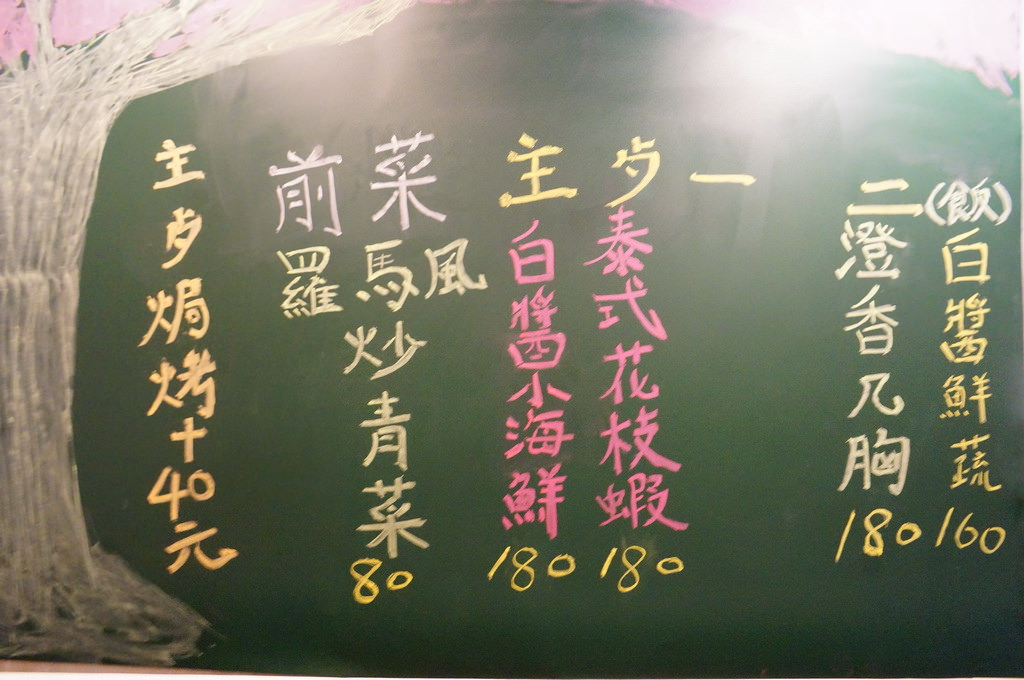 主歺焗烤+40元
前菜
羅馬風
炒青菜
80
主歺一
白醬小海鮮
180
泰式花枝蝦
180
二
澄香几胸
180
(飯)
白醬鮮蔬
160